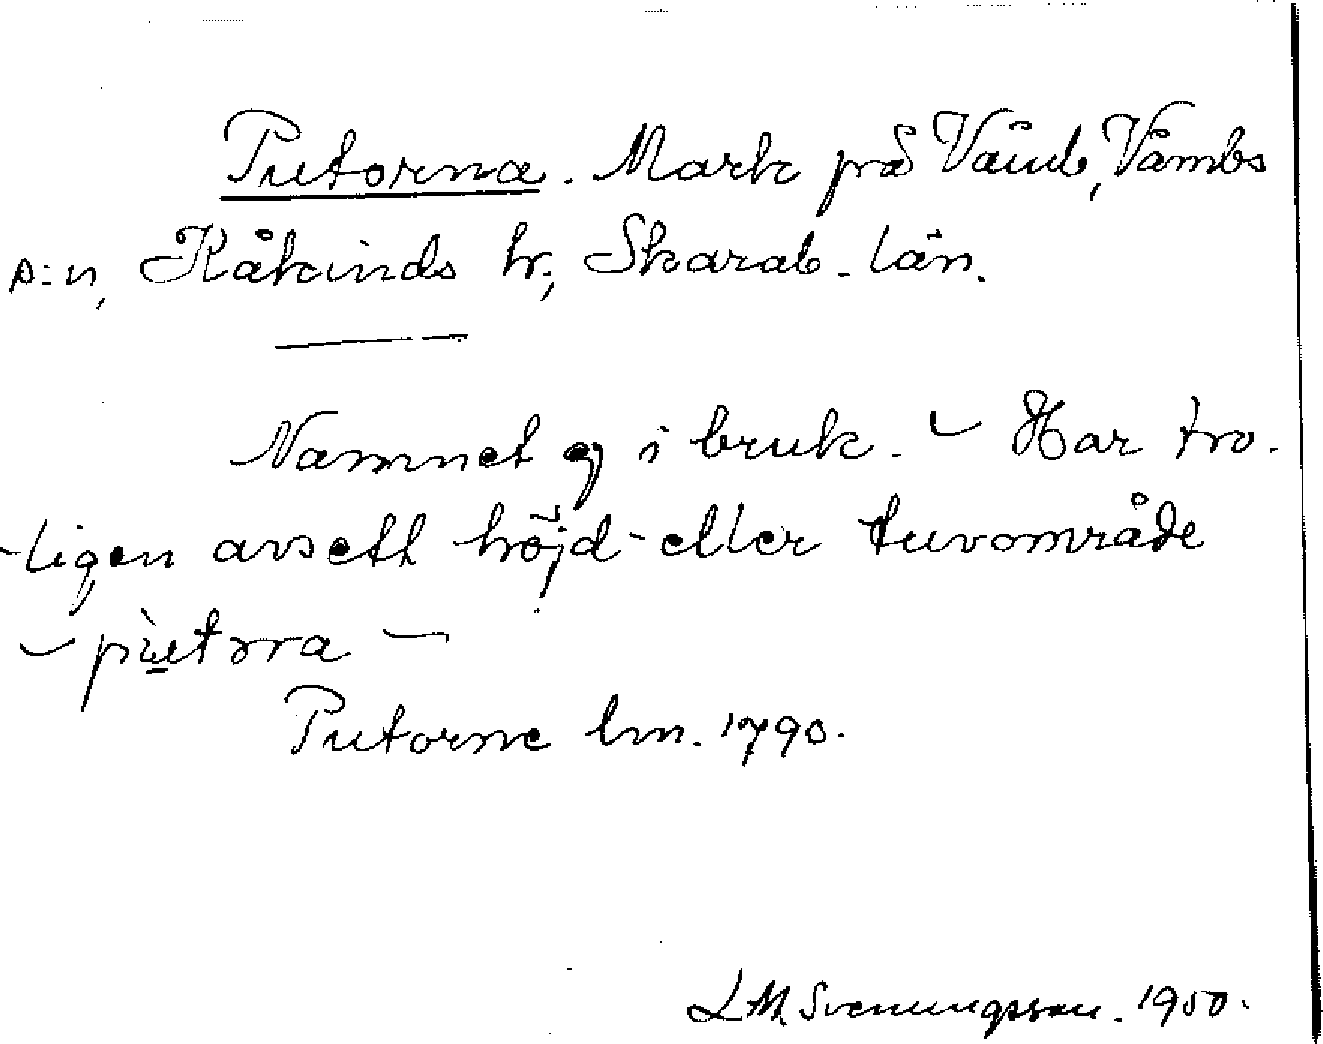 Putorna. Mark på Våmb, Våmbs
s:n, Kåkinds hr, Skarab. län.
Namnet ej i bruk. – Har tro-
-ligen avsett höjd- eller tuvområde
– pùtɔrɔa –
Putorne lm. 1790.
LM. Svenungsson. 1950.